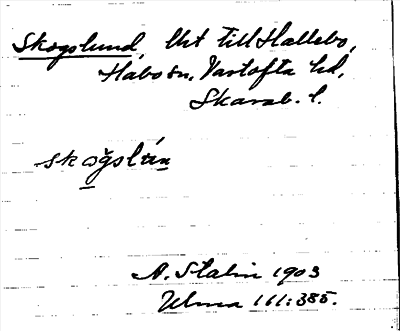 Skogslund, lht till Hallebo,
Habo sn, Vartofta hd,
Skarab. l.
skogslún
A. Stalin 1903
Ulma 161:385.